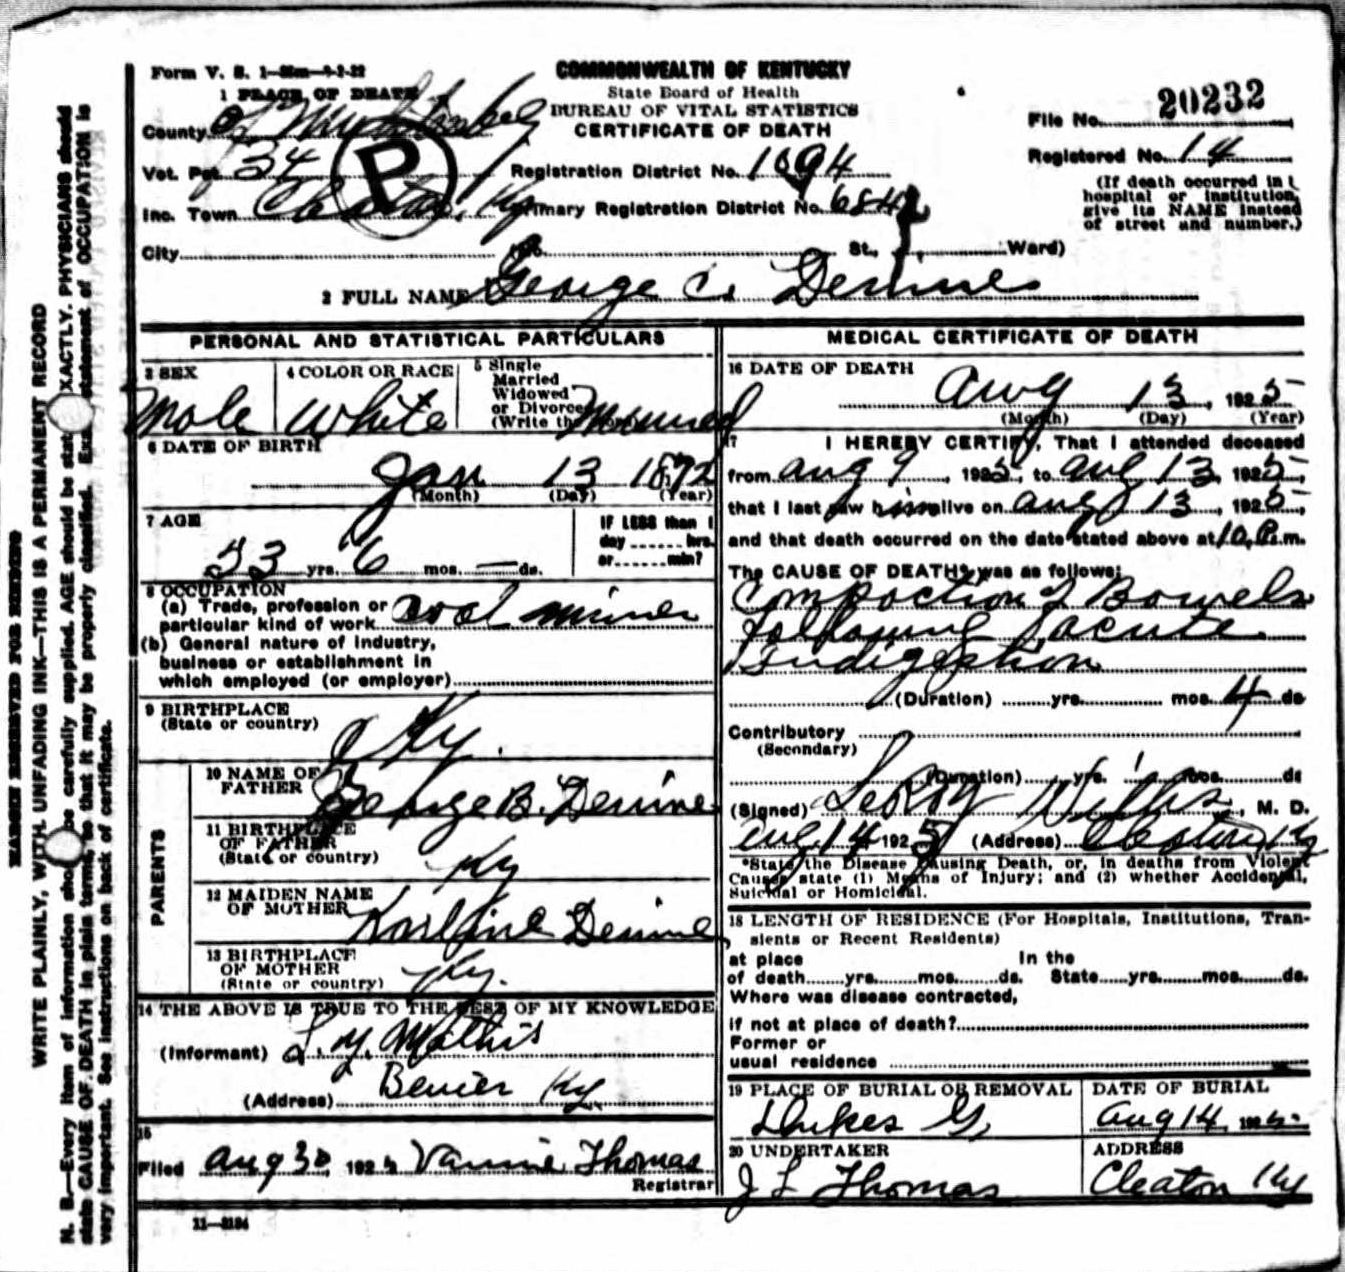 Form V. S. 1—
COMMONWEALTH OF KENTUCKY
State Board of Health
BUREAU OF VITAL STATISTICS
CERTIFICATE OF DEATH
File No. 20232
Registered No. 14
(If death occurred in
hospital or institution,
give its NAME instead
of street and number.)
1 PLACE OF DEATH
County of
Vot. Pct. 34
P
Registration District No. 1094
Inc. Town Cleaton, Ky
Primary Registration District No.
City No. St., Ward)
2 FULL NAME George C. Devine
PERSONAL AND STATISTICAL PARTICULARS
3 SEX
Male
4 COLOR OR RACE
White
5 Single
Married
Widowed
or Divorced
(Write the
Married
6 DATE OF BIRTH
Jan 13 1872
(Month) (Day) (Year)
7 AGE
53 yrs. 6 mos. — ds.
IF LESS than 1
day ...... hrs.
or ...... min?
8 OCCUPATION
(a) Trade, profession or
particular kind of work coal miner
(b) General nature of industry,
business or establishment in
which employed (or employer)
9 BIRTHPLACE
(State or country)
Ky.
PARENTS
10 NAME OF
FATHER George B. Devine
11 BIRTHPLACE
OF FATHER
(State or country) Ky
12 MAIDEN NAME
OF MOTHER Devine
13 BIRTHPLACE
OF MOTHER
(State or country) Ky.
14 THE ABOVE IS TRUE TO THE BEST OF MY KNOWLEDGE
(Informant) Mathis
(Address) Bevier Ky.
15
Filed Aug 30, 1925 Vannie Thomas
Registrar
11—3184
MEDICAL CERTIFICATE OF DEATH
16 DATE OF DEATH
Aug 13, 1925
(Month) (Day) (Year)
17 I HEREBY CERTIFY, That I attended deceased
from Aug 9, 1925, to Aug 13, 1925,
that I last saw him alive on Aug 13, 1925,
and that death occurred on the date stated above at 10 P.m.
The CAUSE OF DEATH* was as follows:
Compaction of Bowels
following acute
Indigestion
(Duration) yrs. mos. 4 ds
Contributory
(Secondary)
(Duration) yrs. mos. ds
(Signed) LeRoy Willis, M. D.
Aug 14 1925 (Address) Cleaton Ky
*State the Disease Causing Death, or, in deaths from Violent
Causes state (1) Means of Injury; and (2) whether Accidental,
Suicidal or Homicidal.
18 LENGTH OF RESIDENCE (For Hospitals, Institutions, Tran-
sients or Recent Residents)
at place In the
of death yrs. mos. ds. State yrs. mos. ds.
Where was disease contracted,
if not at place of death?
Former or
usual residence
19 PLACE OF BURIAL OR REMOVAL
Dukes
DATE OF BURIAL
Aug 14 1925
20 UNDERTAKER
J L Thomas
ADDRESS
Cleaton Ky
MARGIN RESERVED FOR BINDING
WRITE PLAINLY, WITH UNFADING INK—THIS IS A PERMANENT RECORD
N. B.—Every item of information should be carefully supplied. AGE should be stated EXACTLY. PHYSICIANS should
state CAUSE OF DEATH in plain terms, so that it may be properly classified. Exact statement of OCCUPATION is
very important. See instructions on back of certificate.